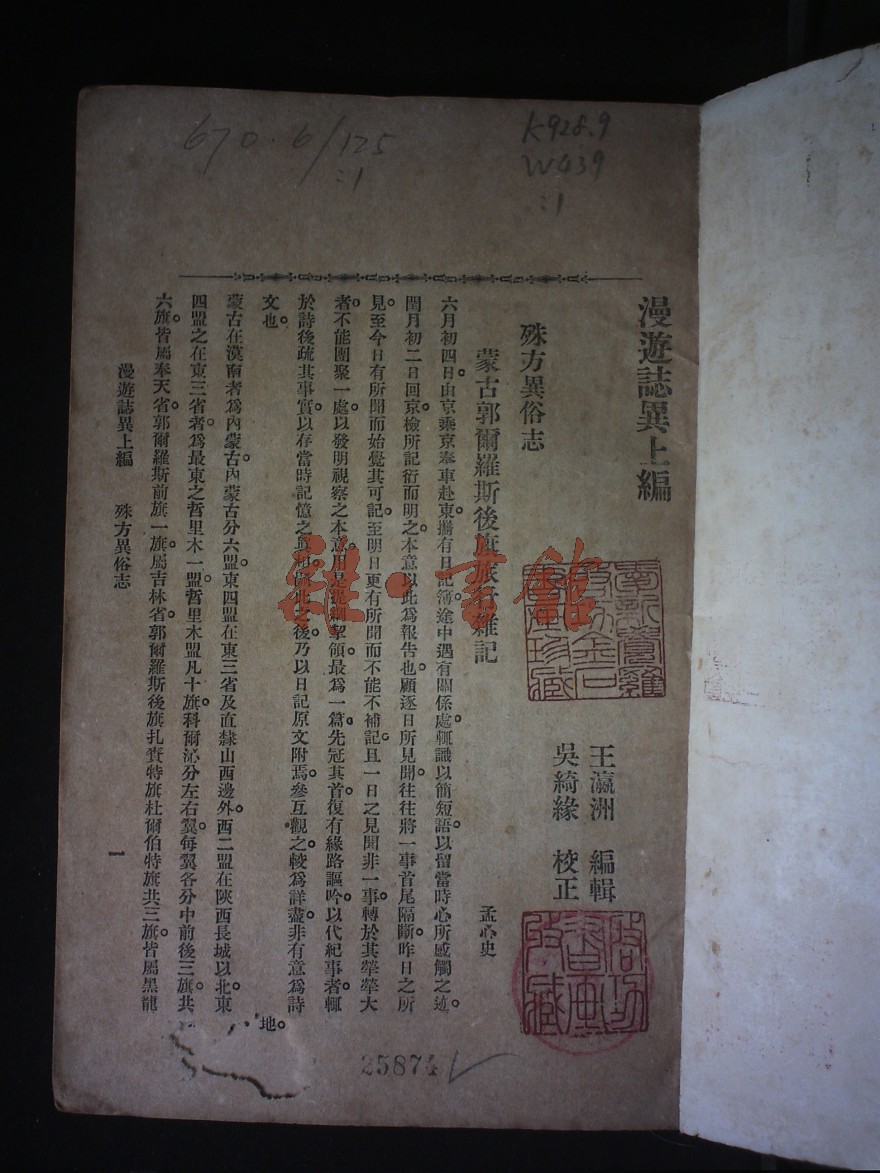 670.6/125
:1
K928.9
W439
:1
漫遊誌異上編
王瀛洲 編輯
吳綺緣 校正
殊方異俗志
蒙古郭爾羅斯後旗旅行雜記
孟心史
六月初四日。由京乘京奉車赴東。攜有日記簿。途中遇有關係處。輒識以簡短語。以留當時心所感觸之迹。
閏月初二日回京。檢所記衍而明之。本意以此爲報告也。顧逐日所見聞。往往將一事首尾隔斷。昨日之所
見。至今日有所聞而始覺其可記。至明日更有所聞而不能不補記。且一日之見聞非一事。轉於其犖犖大
者。不能團聚一處。以發明視察之本意。用是提綱挈領。最爲一篇。先冠其首。復有緣路謳吟。以代紀事者。輒
於詩後疏其事實。以存當時記憶之眞相。附此之後。乃以日記原文附焉。參互觀之。較爲詳盡。非有意爲詩
文也。
蒙古在漠南者爲內蒙古。內蒙古分六盟。東四盟在東三省及直隸山西邊外。西二盟在陝西長城以北。東
四盟之在東三省者。爲最東之哲里木一盟。哲里木盟凡十旗。科爾沁分左右翼。每翼各分中前後三旗。共
六旗。皆屬奉天省。郭爾羅斯前旗一旗。屬吉林省。郭爾羅斯後旗扎賚特旗杜爾伯特旗共三旗。皆屬黑龍
地。
漫遊誌異上編 殊方異俗志
一
25874